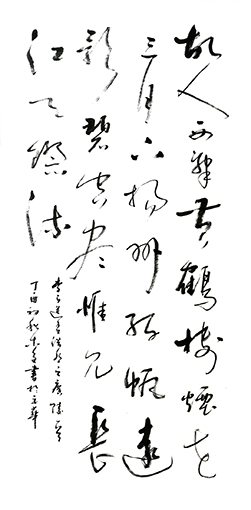 故人西辭黄鶴樓煙花
三月下揚州孤帆遠
影碧空盡惟見長
江天際流
李白送孟浩然之廣陵
丁酉初秋書於京華